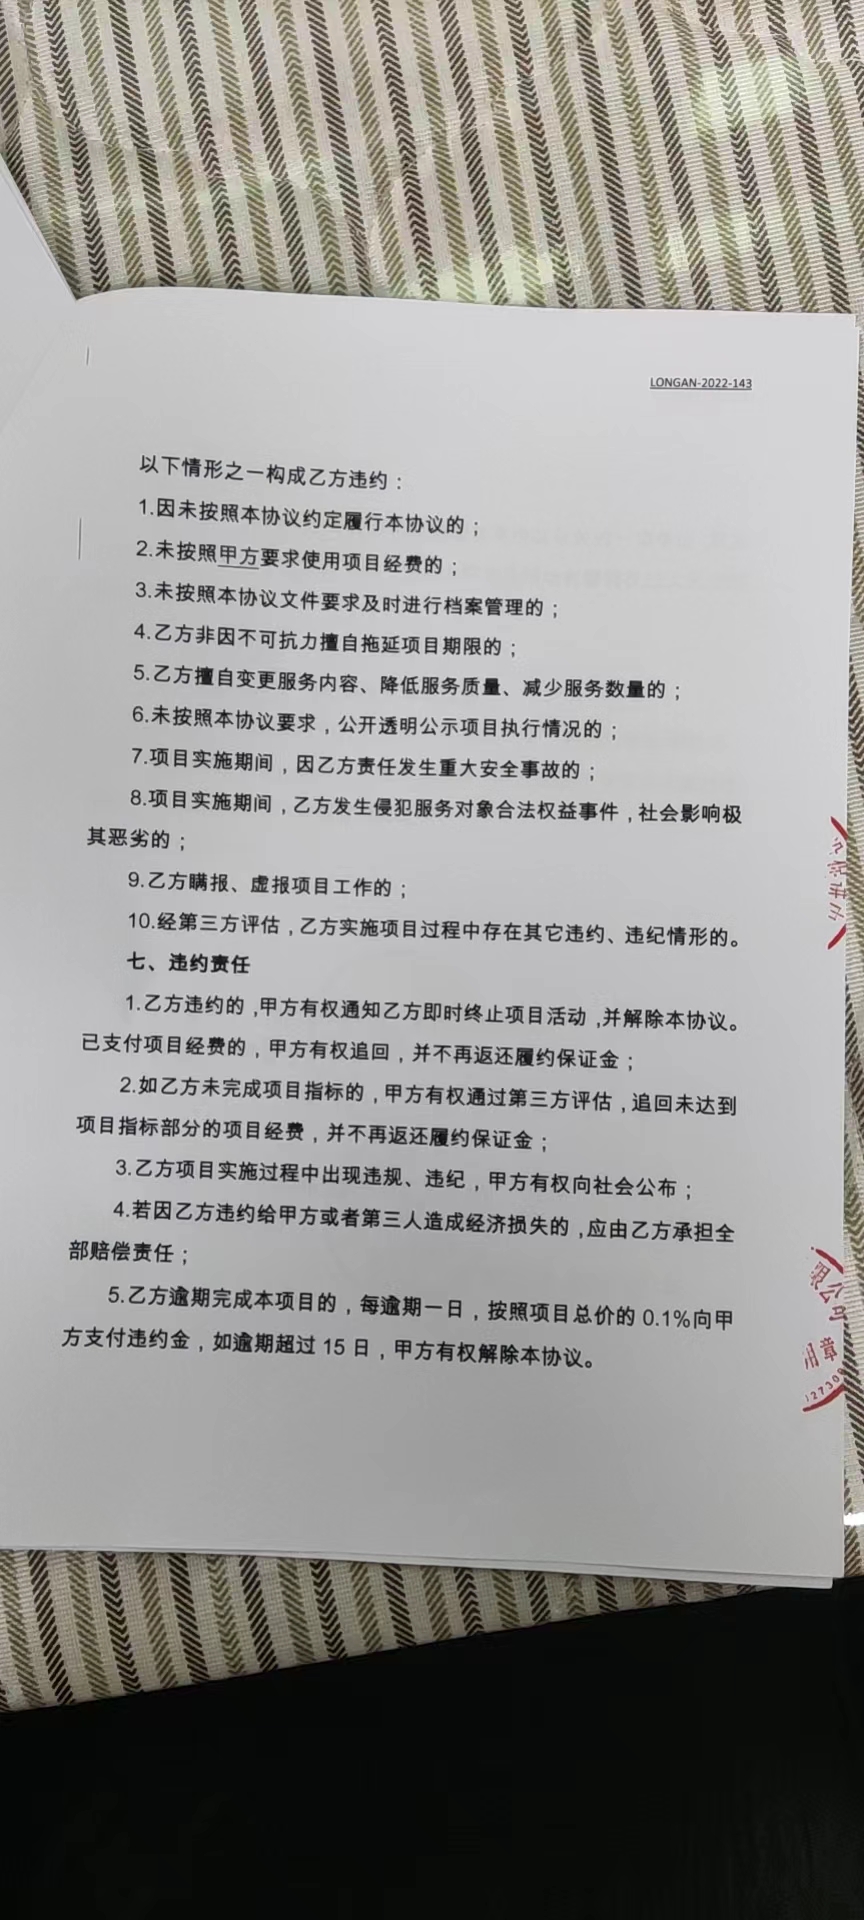 LONGAN-2022-143
以下情形之一构成乙方违约：
1.因未按照本协议约定履行本协议的；
2.未按照甲方要求使用项目经费的；
3.未按照本协议文件要求及时进行档案管理的；
4.乙方非因不可抗力擅自拖延项目期限的；
5.乙方擅自变更服务内容、降低服务质量、减少服务数量的；
6.未按照本协议要求，公开透明公示项目执行情况的；
7.项目实施期间，因乙方责任发生重大安全事故的；
8.项目实施期间，乙方发生侵犯服务对象合法权益事件，社会影响极
其恶劣的；
9.乙方瞒报、虚报项目工作的；
10.经第三方评估，乙方实施项目过程中存在其它违约、违纪情形的。
七、违约责任
1.乙方违约的，甲方有权通知乙方即时终止项目活动，并解除本协议。
已支付项目经费的，甲方有权追回，并不再返还履约保证金；
2.如乙方未完成项目指标的，甲方有权通过第三方评估，追回未达到
项目指标部分的项目经费，并不再返还履约保证金；
3.乙方项目实施过程中出现违规、违纪，甲方有权向社会公布；
4.若因乙方违约给甲方或者第三人造成经济损失的，应由乙方承担全
部赔偿责任；
5.乙方逾期完成本项目的，每逾期一日，按照项目总价的 0.1%向甲
方支付违约金，如逾期超过 15 日，甲方有权解除本协议。
限公司
用章